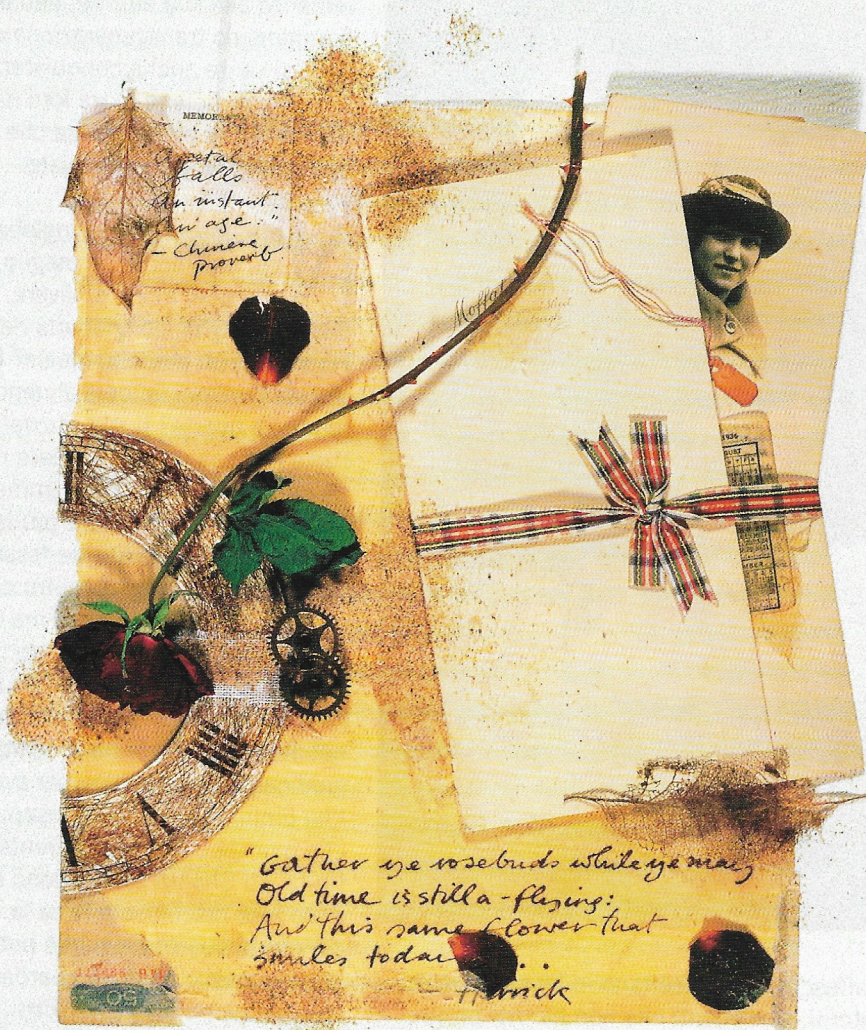 MEMOR
A petal
falls
an instant.
An age."
– Chinese
proverb
Moffat
1936
"Gather ye rosebuds while ye may
Old time is still a-flying:
And this same flower that
smiles today . . .
– Herrick
50